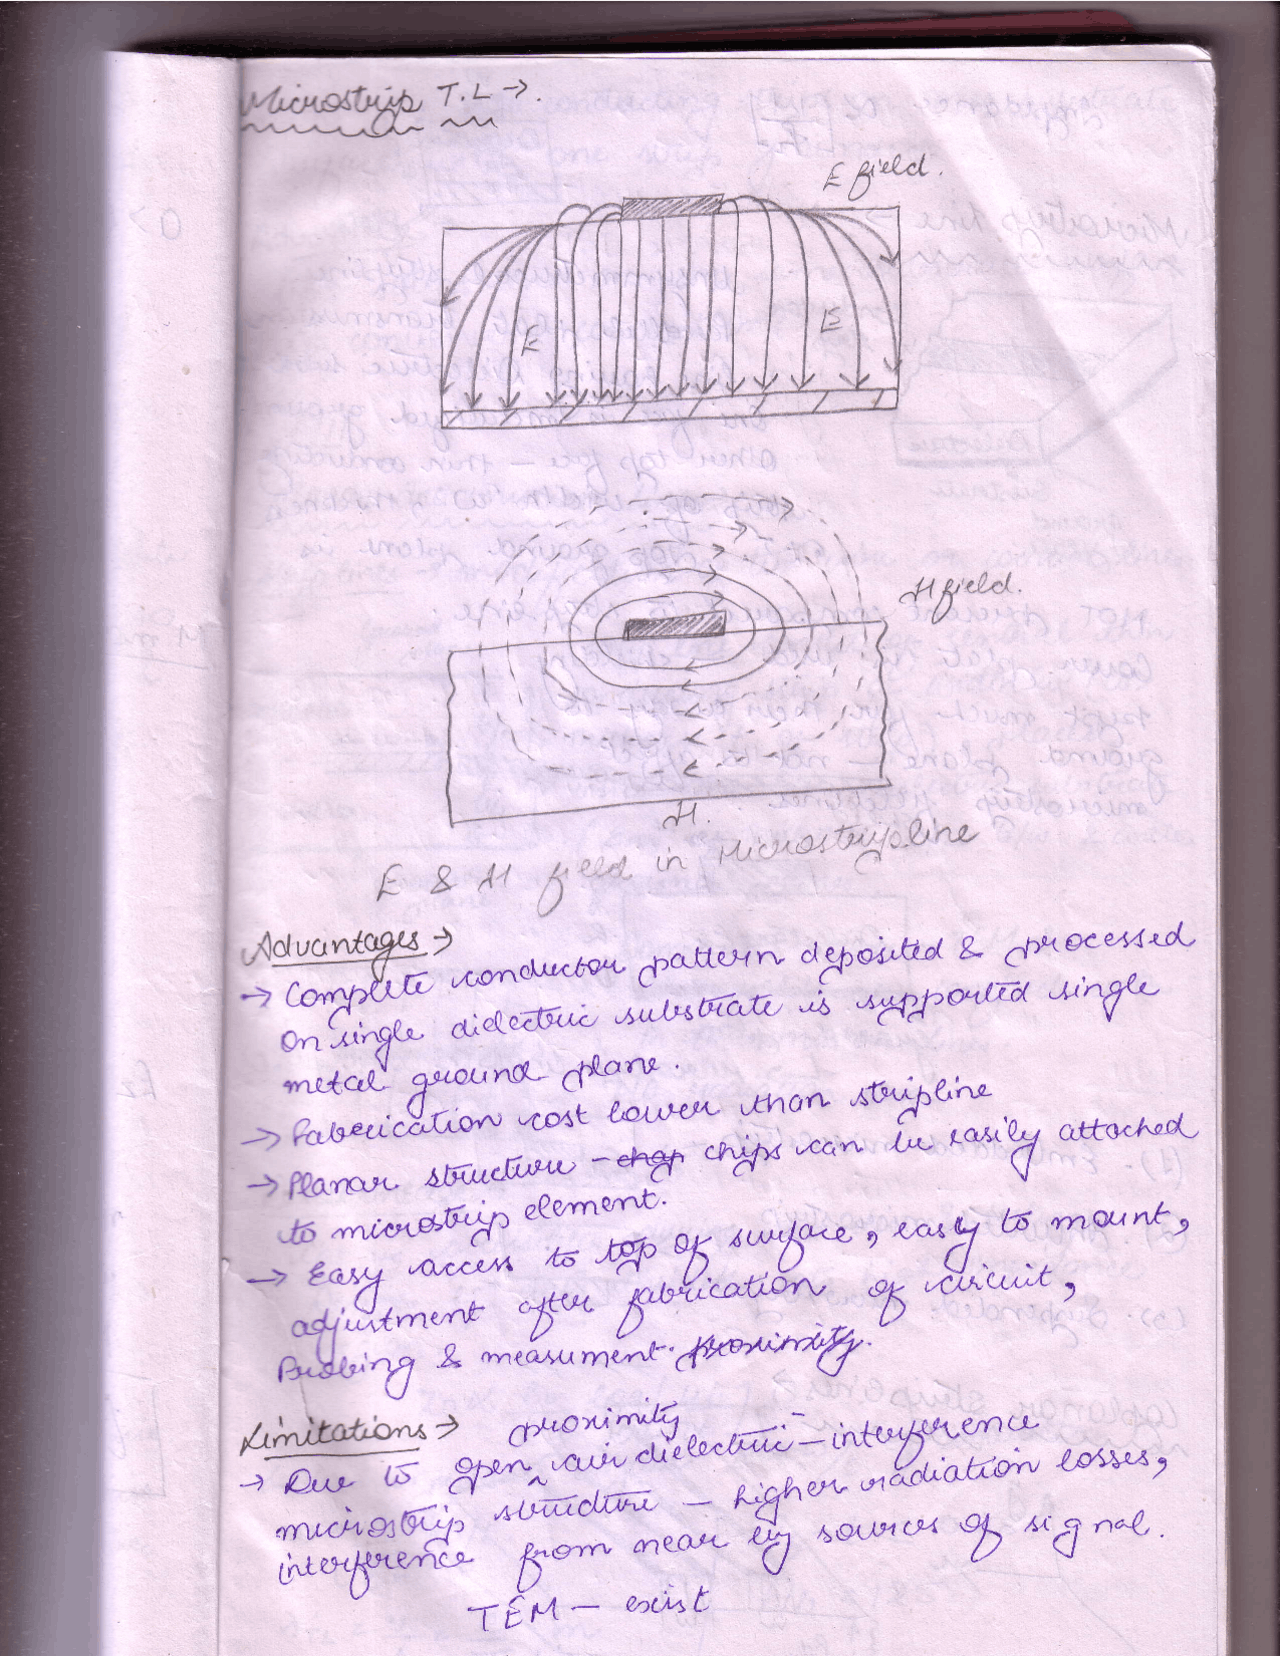 Microstrip T.L →.
E field.
E E
H field.
H.
E & H field in Microstripline
Advantages →
→ Complete conductor pattern deposited & processed
on single dielectric substrate is supported single
metal ground plane.
→ Fabrication cost lower than stripline
→ Planar structure - chips can be easily attached
to microstrip element.
→ Easy access to top of surface, easy to mount,
adjustment after fabrication of circuit,
Probing & measument. proximity.
Limitations → proximity
→ Due to open air dielectric - interference
microstrip structure - higher radiation losses,
interference from near by sources of signal.
TEM - exist